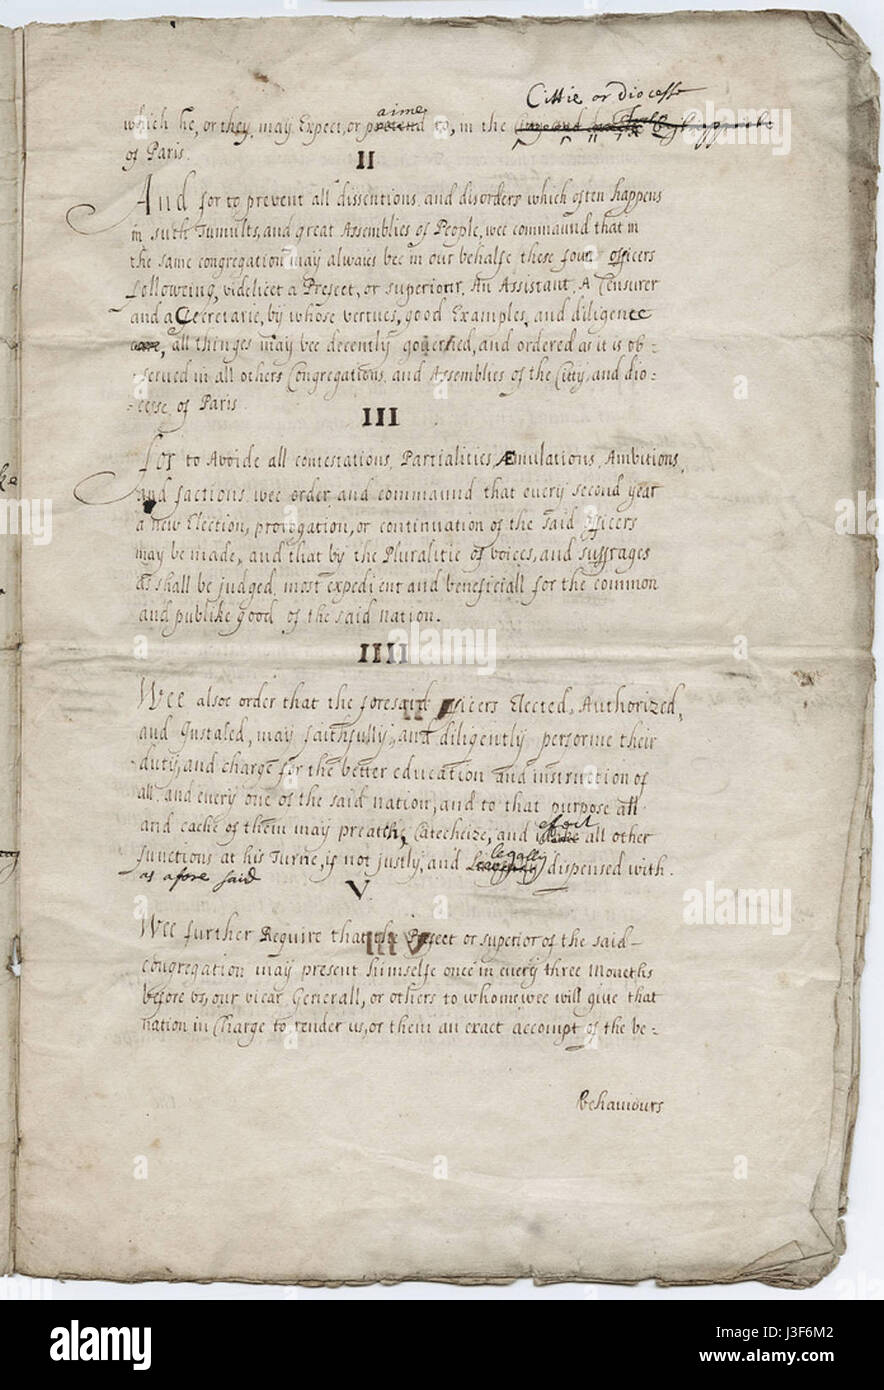 Cittie or Diocesse
aime
which he, or they may Expect, or pretend to, in the
of Paris.
II
And for to prevent all dissentions, and disorders which often happens
in such Tumults, and great Assemblies of People, wee commaund that in
the same congregation may alwaies bee in our behalfe these four officers
followeing, videlicet a Prefect, or superiour, An Assistant, A Censurer
and a Secretarie, by whose vertues, good Examples, and diligence
care, all thinges may bee decently governed, and ordered as it is ob-
served in all others Congregations, and Assemblies of the Citty, and dio-
-cesse of Paris
III
For to Avoide all contestations, Partialities, Æmulations, Ambitions,
and factions, wee order and commaund that every second year
a new Election, provogation, or continuation of the said officers
may be made, and that by the Pluralitie of voices, and suffrages
as shall be judged most expedient and beneficiall for the common
and publike good of the said nation.
IIII
Wee alsoe order that the foresaid officers Elected, Authorized,
and Instaled, may faithfully, and diligently performe their
duty, and charge for the better education and instruction of
all, and every one of the said nation, and to that purpose all
and eache of them may preath, Catecheize, and efect all other
functions at his Turne, if not justly, and legally dispensed with.
as afore said
V.
Wee further Require that the Prefect or superior of the said
congregation may present himselfe once in every three Moneths
before us, our vicar Generall, or others to whome wee will give that
nation in Charge to render us, or them an exact accompt of the be-
behaviours
alamy
alamy
Image ID: J3F6M2
www.alamy.com